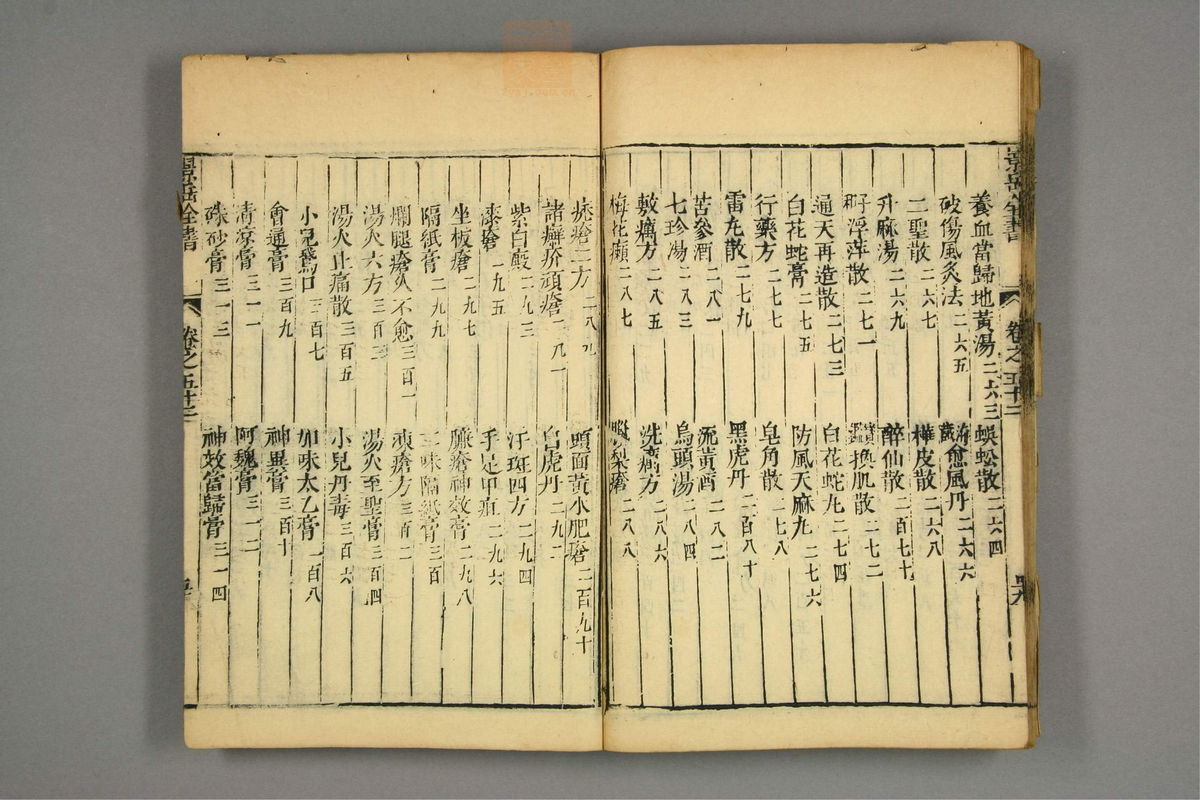 景岳全書
卷之五十二
養血當歸地黃湯二六三
蜈蚣散二六四
破傷風灸法二六五
愈風丹二六六
二聖散二六七
樺皮散二六八
升麻湯二六九
醉仙散二百七十
浮萍散二七一
換肌散二七二
通天再造散二七三
白花蛇丸二七四
白花蛇膏二七五
防風天麻丸二七六
行藥方二七七
皂角散二七八
雷丸散二七九
黑虎丹二百八十
苦參酒二八一
硫黃酒二八二
七珍湯二八三
烏頭湯二八四
敷癘方二八五
洗癘方二八六
梅花癩二八七
梨瘡二八八
瘡二方二八九
頭面黃水肥瘡二百九十
諸癬疥頑瘡二九一
白虎丹二九二
紫白癜二九三
汗斑四方二九四
漆瘡二九五
手足甲疽二九六
坐板瘡二九七
臁瘡神效膏二九八
隔紙膏二九九
三味隔紙膏三百
爛腿瘡久不愈三百一
凍瘡方三百二
湯火六方三百三
湯火至聖膏三百四
湯火止痛散三百五
小兒丹毒三百六
小兒鵞口三百七
加味太乙膏三百八
會通膏三百九
神異膏三百十
清涼膏三一一
阿魏膏三一二
硃砂膏三一三
神效當歸膏三一四
景岳全書
卷之五十二